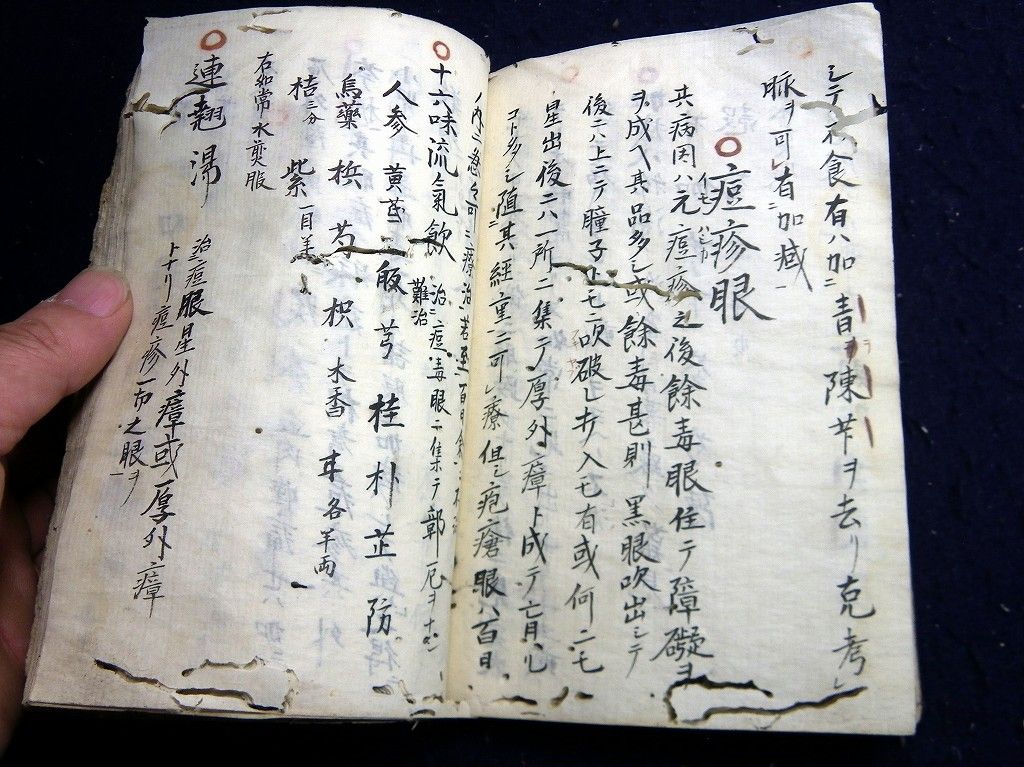 シテ不食有ハ加ニ青ヲ陳ヲ去リ克考ヘ
脉ヲ可シ有ニ加減一
痘疹眼
イモ ハシカ
其病因ハ元痘疹之後餘毒眼住テ障礙ヲ
ヲ成ス其品多シ或餘毒甚則黒眼吹出シテ
後ニハ上ニテ瞳子モ破レ入モ有或何ニモ
星出後ニハ一所ニ集テ厚外瘴ト成テ亡眼
コト多シ随其經重ニ可シ療但シ疱瘡眼ハ百日
ノ内ニ急々可ニ療治若至百日
十六味流氣飲 治ニ痘毒眼ニ集テ
難治
人参 黄芪 芎 桂 朴 芷 防
烏藥 梹 芍 枳 木香 各半両
桔三分 紫一目
右如常水煎服
連翹湯 治痘眼星外瘴或厚外瘴
トナリ痘疹一切之眼ヲ